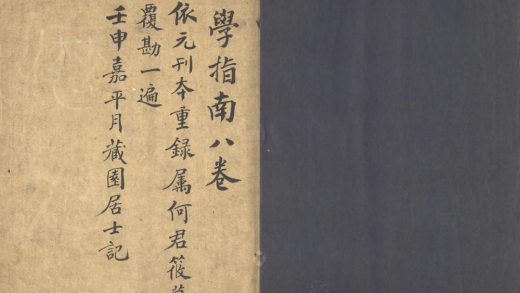 學指南八卷
依元刊本重録属何君筱
覆勘一遍
壬申嘉平月藏園居士記